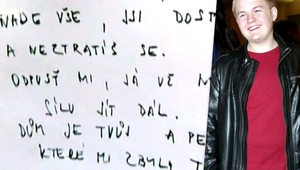 NADE VŠE, JSI DOST
A NEZTRATÍŠ SE.
ODPUSŤ MI, JÁ UŽ
SÍLU JÍT DÁL.
DŮM JE TVŮJ A
KTERÉ MI ZBYLY